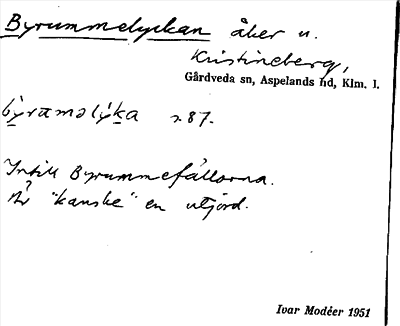 Byrummelyckan åker u.
Kristineberg,
Gårdveda sn, Aspelands hd, Klm. l.
by̤raməly̤ka s. 87.
Intill Byrummefållorna.
Är "kanske" en utjord.
Ivar Modéer 1951